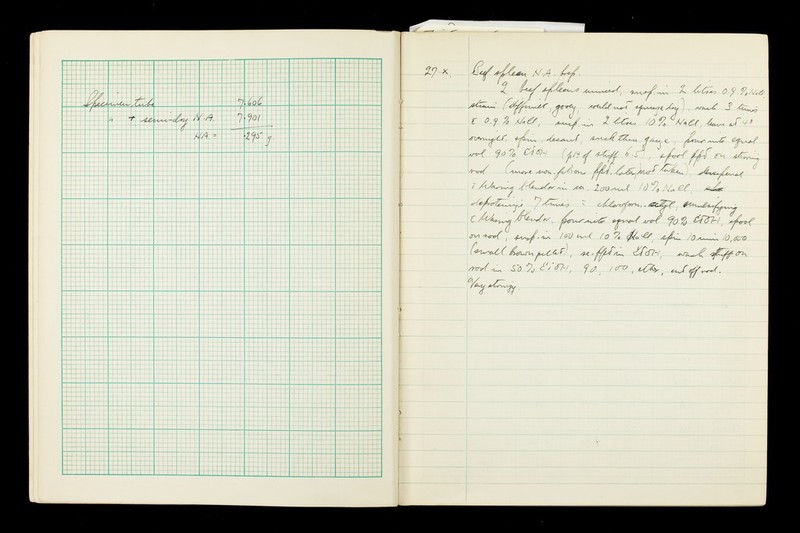 Specimen tube 7.606
" + semi-dry N.A. 7.901
N.A = .295 g
27.X. Beef spleen N.A. prep.
2 beef spleens minced, susp. in 2 litres 0.9% NaCl
strain (difficult, gooey, would not squeeze dry), wash 3 times
c 0.9% NaCl, susp in 2 litres 10% NaCl, leave at 4°
overnight, spin, decant, suck thru gauze, pour into equal
vol 90% EtOH (pH of stuff 6.5), spool ppt on stirring
rod (more non-fibrous ppt. later, not taken)
c Waring blendor in ca. 200 ml 10% NaCl,
7 times c chloroform-octyl, emulsifying
c Waring blendor. pour into equal vol 90% EtOH, spool
on rod, susp. in 100 ml 10% NaCl, spin 10 min 10,000
(small brown pellet), re-ppt in EtOH, wash stuff on
rod in 50% EtOH, 90, 100, ether, cut off rod.
Very stringy.